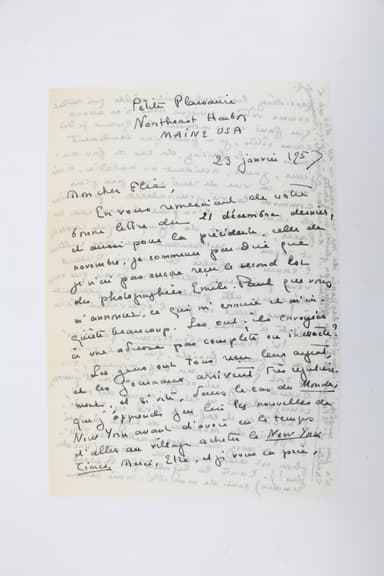 Petite Plaisance
Northeast Harbor
MAINE USA
23 janvier 1957
Mon cher Elie,
En vous remerciant de votre
bonne lettre du 21 décembre dernier,
et aussi pour la précédente, celle de
novembre, je commence par dire que
je n'ai pas encore reçu le second lot
des photographies Emile-Paul que vous
m'annoncez, ce qui m'ennuie et m'in-
quiète beaucoup. Les ont-ils envoyées
à une adresse pas complète ou inexacte?
Les gens ont tous reçu leur
et les journaux arrivent très régulière-
ment, et si vite, dans le cas du Monde,
que j'apprends par lui les nouvelles de
New York avant d'avoir eu le temps
d'aller au village acheter le New York
Times. Merci, Elie, et je vous en prie,